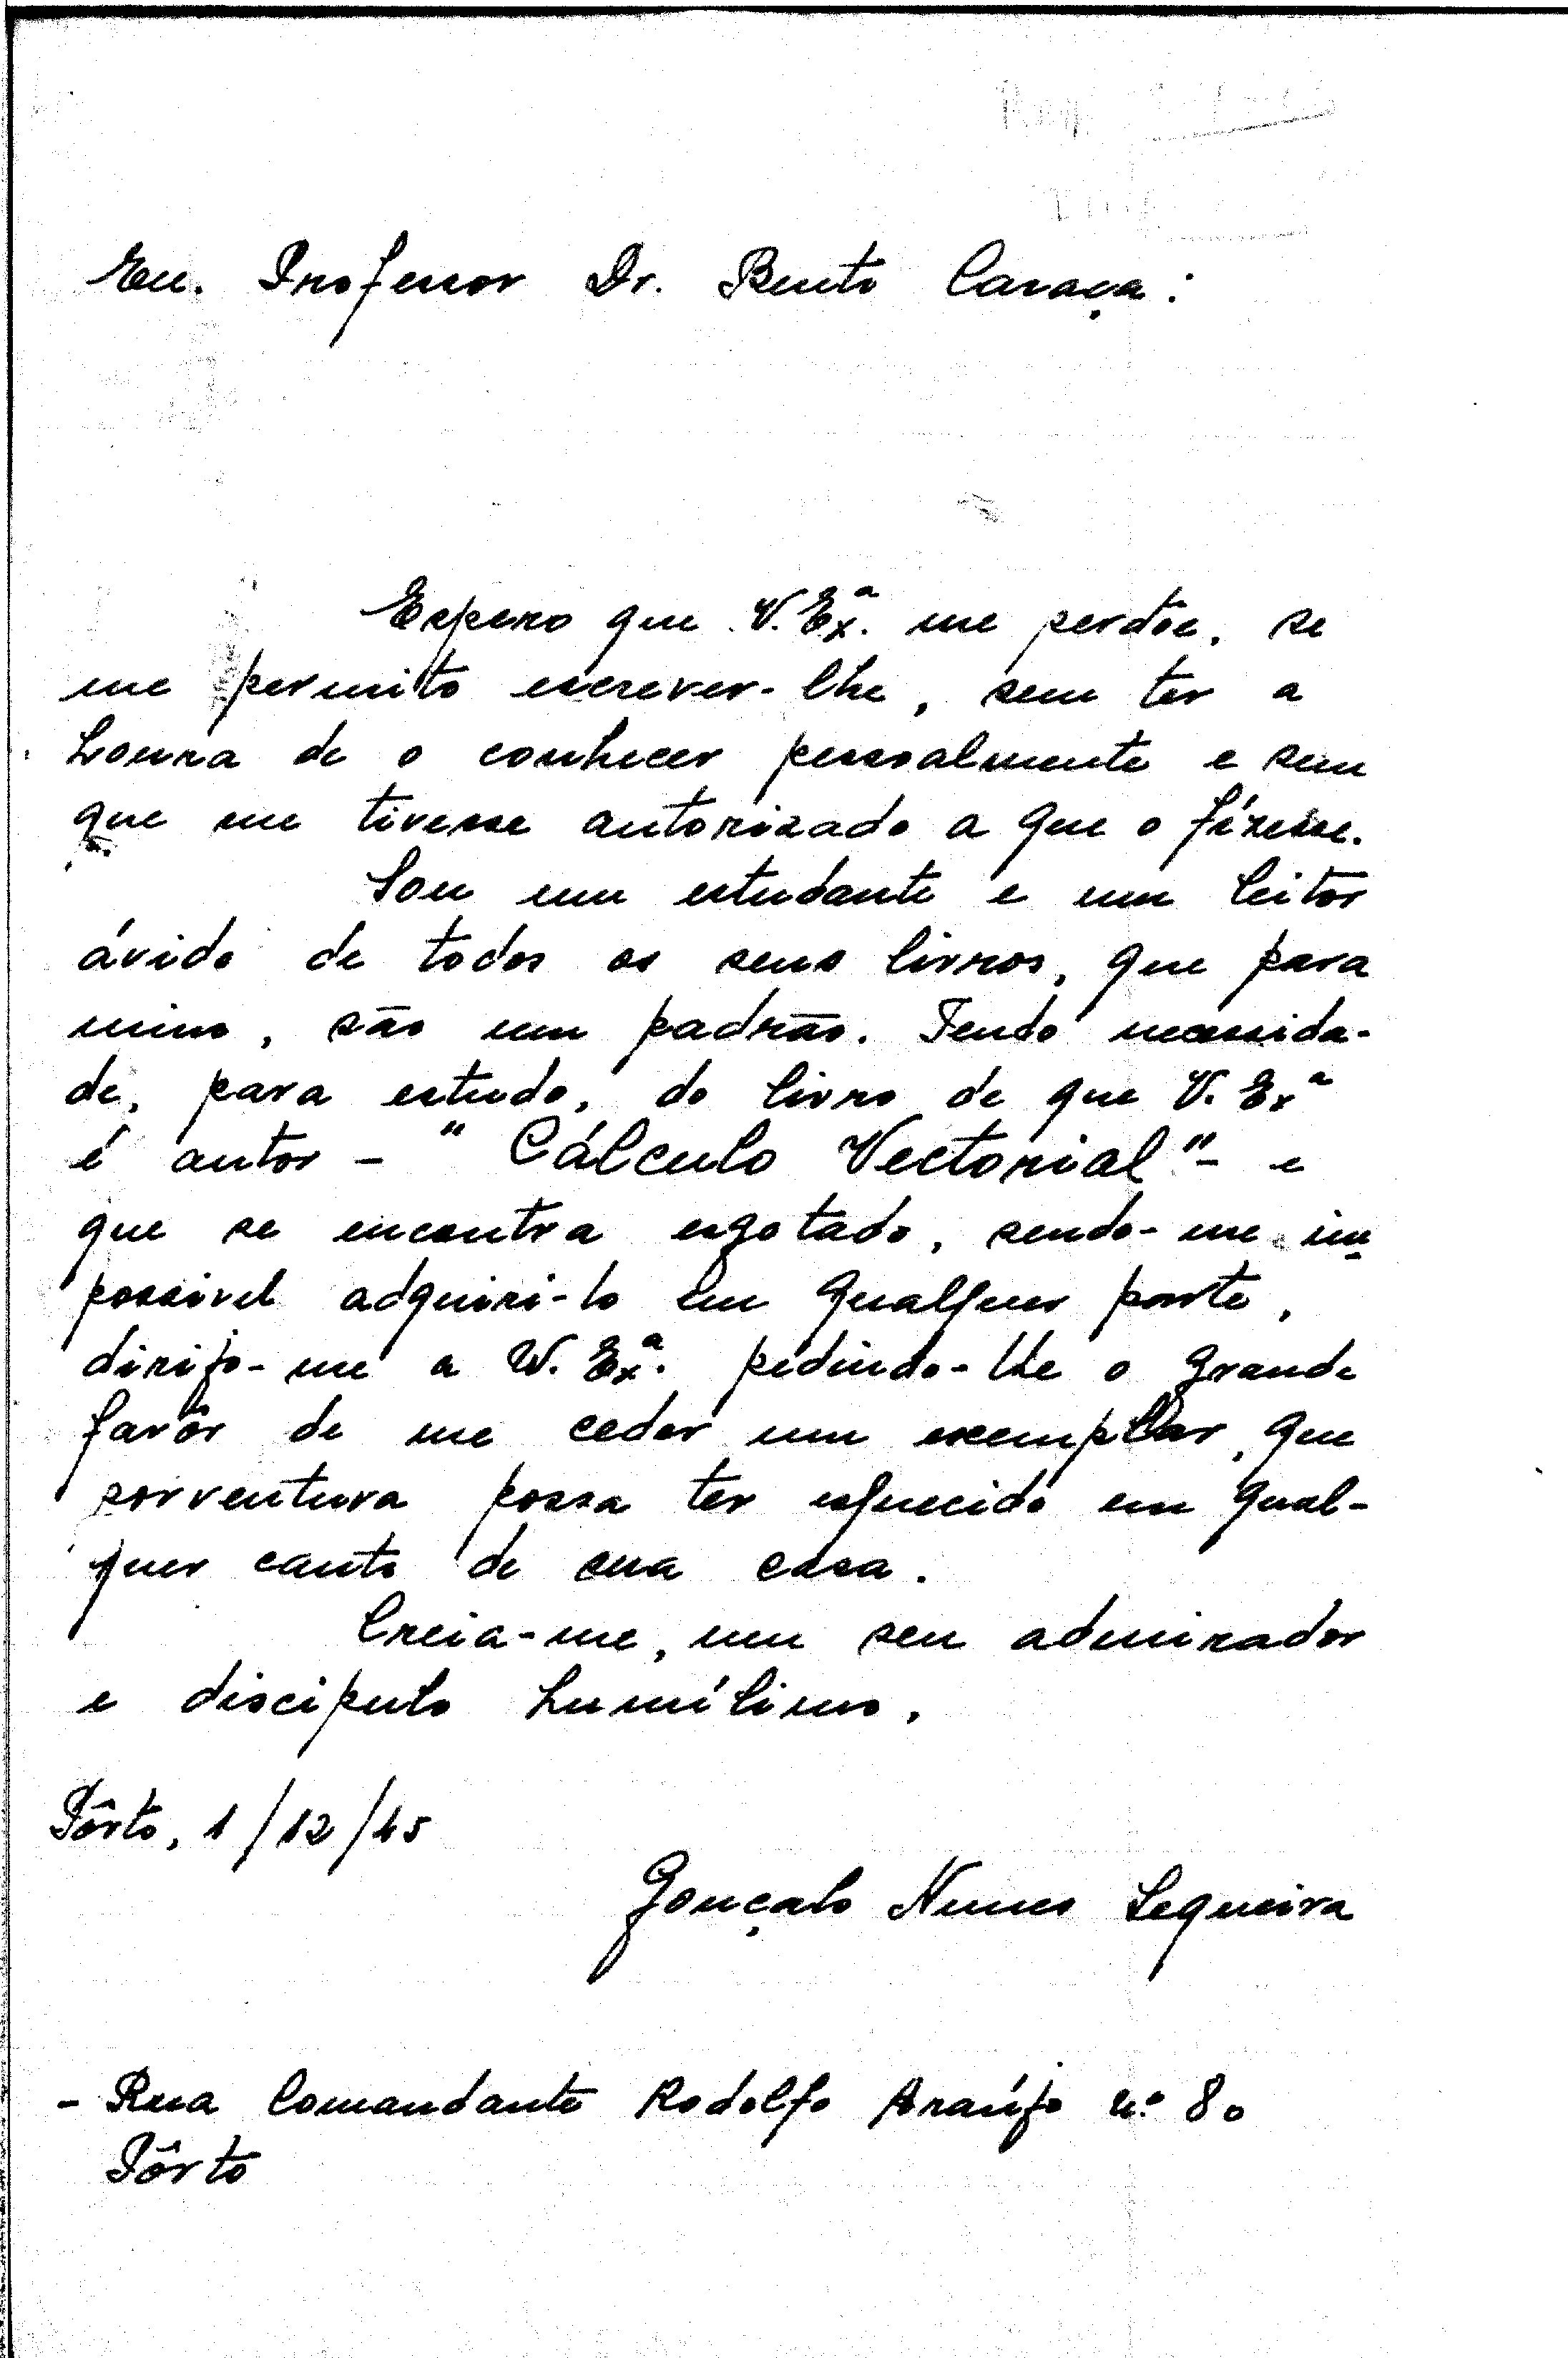 Professor Dr. Bento Caraça:
Espero que V. Exª. me perdôe, se
me permito escrever-lhe, sem ter a
honra de o conhecer pessoalmente e sem
que me tivesse autorizado a que o fizesse.
Sou um estudante e um leitor
ávido de todos os seus livros, que para
mim, são um padrão. Tendo necessida-
de, para estudo, do livro de que V. Exª
é autor - "Cálculo Vectorial" - e
que se encontra esgotado, sendo-me im
possivel adquiri-lo em qualquer parte,
dirijo-me a V. Exª. pedindo-lhe o grande
favôr de me ceder um exemplar, que
porventura possa ter esquecido em qual-
quer canto de sua casa.
Creia-me, um seu admirador
e discipulo humílimo,
Pôrto, 1/12/45
Gonçalo Nunes Sequeira
- Rua Comandante Rodolfo Araújo n.º 80
Pôrto